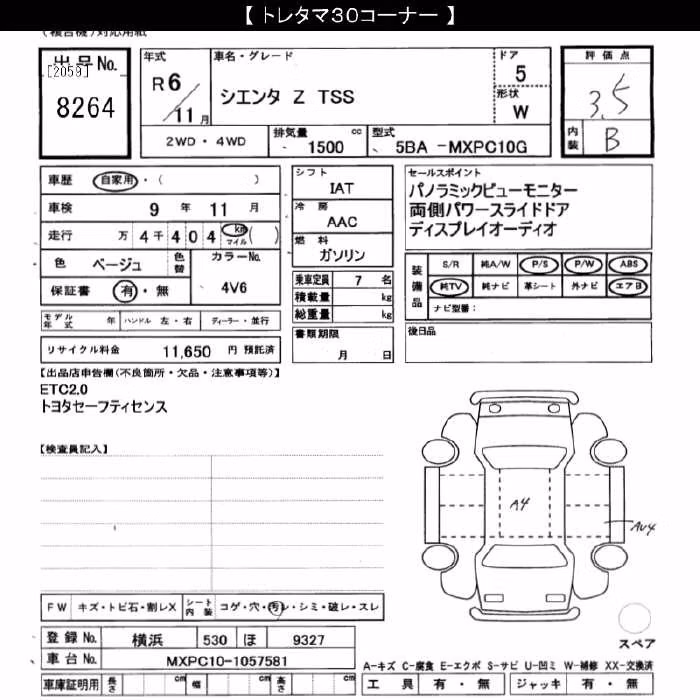 【 トレタマ30コーナー 】
(複合機)対応用紙
出品No.
[2059]
8264
年式
R6
11月
車名・グレード
シエンタ Z TSS
ドア
5
形状
W
評価点
3.5
内装
B
2WD・4WD
排気量
1500 cc
型式
5BA -MXPC10G
車歴 自家用・( )
車検 9 年 11 月
走行 万 4千404 km マイル ( )
色 ベージュ 色替
カラーNo.
4V6
保証書 有・無
モデル年式 年 ハンドル 左・右 ディーラー・並行
リサイクル料金 11,650 円 預託済
シフト
IAT
冷房
AAC
燃料
ガソリン
乗車定員 7 名
積載量 kg
総重量 kg
書類期限
月 日
セールスポイント
パノラミックビューモニター
両側パワースライドドア
ディスプレイオーディオ
装備品
S/R 純A/W P/S P/W ABS
純TV 純ナビ 革シート 外ナビ エアB
ナビ型番:
後日品
【出品店申告欄(不良箇所・欠品・注意事項等)】
ETC2.0
トヨタセーフティセンス
【検査員記入】
A4
AU4
スペア
FW キズ・トビ石・割レX シート内装 コゲ・穴・汚レ・シミ・破レ・スレ
登録No. 横浜 530 ほ 9327
車台No. MXPC10-1057581
車庫証明用 長さ cm 幅 cm 高さ cm
A-キズ C-腐食 E-エクボ S-サビ U-凹ミ W-補修 XX-交換済
工具 有・無 ジャッキ 有・無